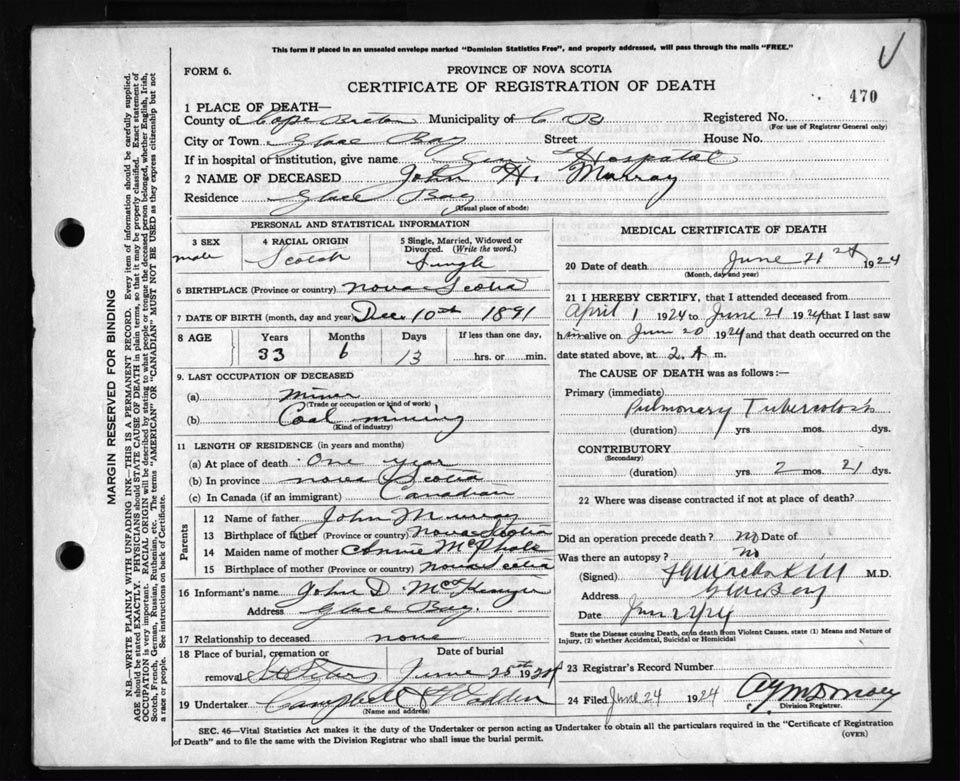 This form if placed in an unsealed envelope marked "Dominion Statistics Free", and properly addressed, will pass through the mails "FREE."
FORM 6.
PROVINCE OF NOVA SCOTIA
CERTIFICATE OF REGISTRATION OF DEATH
470
1 PLACE OF DEATH—
County of Cape Breton Municipality of C B Registered No.
(For use of Registrar General only)
City or Town Glace Bay Street House No.
If in hospital of institution, give name Gen Hospital
2 NAME OF DECEASED John H. Murray
Residence Glace Bay
(Usual place of abode)
PERSONAL AND STATISTICAL INFORMATION
3 SEX 4 RACIAL ORIGIN 5 Single, Married, Widowed or Divorced. (Write the word.)
male Scotch Single
6 BIRTHPLACE (Province or country) Nova Scotia
7 DATE OF BIRTH (month, day and year) Dec 10th 1891
8 AGE Years Months Days If less than one day,
33 6 13 hrs. or min.
9. LAST OCCUPATION OF DECEASED
(a) Miner
(Trade or occupation or kind of work)
(b) Coal mining
(Kind of industry)
11 LENGTH OF RESIDENCE (in years and months)
(a) At place of death One year
(b) In province Nova Scotia
(c) In Canada (if an immigrant) Canadian
Parents
12 Name of father John Murray
13 Birthplace of father (Province or country) Nova Scotia
14 Maiden name of mother Annie McPhale
15 Birthplace of mother (Province or country) Nova Scotia
16 Informant's name John D. McKenzie
Address Glace Bay.
17 Relationship to deceased none
18 Place of burial, cremation or removal Date of burial
June 25th 1924
19 Undertaker Campbell & Wadden
(Name and address)
MEDICAL CERTIFICATE OF DEATH
20 Date of death June 21st 1924
(Month, day and year)
21 I HEREBY CERTIFY, that I attended deceased from
April 1 1924 to June 21 1924 that I last saw
him alive on Jun 20 1924 and that death occurred on the
date stated above, at 2. A m.
The CAUSE OF DEATH was as follows:—
Primary (immediate)
Pulmonary Tuberculosis
(duration) yrs. mos. dys.
CONTRIBUTORY
(Secondary)
(duration) yrs. 2 mos. 21 dys.
22 Where was disease contracted if not at place of death?
Did an operation precede death? no Date of
Was there an autopsy? no
(Signed) M.D.
Address Glace Bay
Date Jun 22/24
State the Disease causing Death, or in death from Violent Causes, state (1) Means and Nature of Injury, (2) whether Accidental, Suicidal or Homicidal
23 Registrar's Record Number
24 Filed June 24 1924
Division Registrar.
SEC. 46—Vital Statistics Act makes it the duty of the Undertaker or person acting as Undertaker to obtain all the particulars required in the "Certificate of Registration
of Death" and to file the same with the Division Registrar who shall issue the burial permit.
(OVER)
MARGIN RESERVED FOR BINDING
N.B.—WRITE PLAINLY WITH UNFADING INK—THIS IS A PERMANENT RECORD. Every item of information should be carefully supplied.
AGE should be stated EXACTLY. PHYSICIANS should STATE CAUSE OF DEATH in plain terms, so that it may be properly classified. Exact statement of
OCCUPATION is very important. RACIAL ORIGIN will be described by stating to what people or tongue the deceased person belonged, whether English, Irish,
Scotch, French, German, Russian, Ruthenian, etc. The terms "AMERICAN" OR "CANADIAN" MUST NOT BE USED as they express citizenship but not
a race or people. See instructions on back of Certificate.